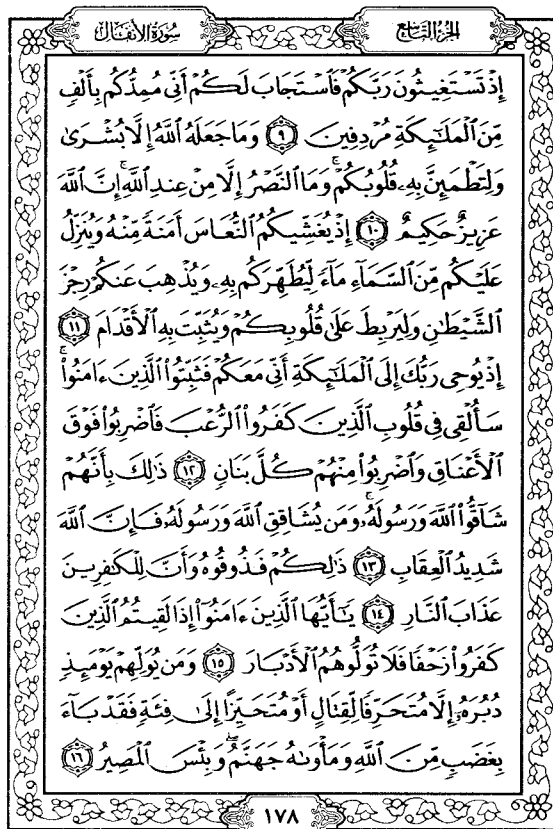 سُورَةُ الأَنفَالِ
الجُزْءُ التَّاسِعُ
إِذْ تَسْتَغِيثُونَ رَبَّكُمْ فَٱسْتَجَابَ لَكُمْ أَنِّى مُمِدُّكُم بِأَلْفٍ
مِّنَ ٱلْمَلَـٰٓئِكَةِ مُرْدِفِينَ ٩ وَمَا جَعَلَهُ ٱللَّهُ إِلَّا بُشْرَىٰ
وَلِتَطْمَئِنَّ بِهِۦ قُلُوبُكُمْ ۚ وَمَا ٱلنَّصْرُ إِلَّا مِنْ عِندِ ٱللَّهِ ۚ إِنَّ ٱللَّهَ
عَزِيزٌ حَكِيمٌ ١٠ إِذْ يُغَشِّيكُمُ ٱلنُّعَاسَ أَمَنَةً مِّنْهُ وَيُنَزِّلُ
عَلَيْكُم مِّنَ ٱلسَّمَآءِ مَآءً لِّيُطَهِّرَكُم بِهِۦ وَيُذْهِبَ عَنكُمْ رِجْزَ
ٱلشَّيْطَـٰنِ وَلِيَرْبِطَ عَلَىٰ قُلُوبِكُمْ وَيُثَبِّتَ بِهِ ٱلْأَقْدَامَ ١١
إِذْ يُوحِى رَبُّكَ إِلَى ٱلْمَلَـٰٓئِكَةِ أَنِّى مَعَكُمْ فَثَبِّتُوا۟ ٱلَّذِينَ ءَامَنُوا۟ ۚ
سَأُلْقِى فِى قُلُوبِ ٱلَّذِينَ كَفَرُوا۟ ٱلرُّعْبَ فَٱضْرِبُوا۟ فَوْقَ
ٱلْأَعْنَاقِ وَٱضْرِبُوا۟ مِنْهُمْ كُلَّ بَنَانٍ ١٢ ذَٰلِكَ بِأَنَّهُمْ
شَآقُّوا۟ ٱللَّهَ وَرَسُولَهُۥ ۚ وَمَن يُشَاقِقِ ٱللَّهَ وَرَسُولَهُۥ فَإِنَّ ٱللَّهَ
شَدِيدُ ٱلْعِقَابِ ١٣ ذَٰلِكُمْ فَذُوقُوهُ وَأَنَّ لِلْكَـٰفِرِينَ
عَذَابَ ٱلنَّارِ ١٤ يَـٰٓأَيُّهَا ٱلَّذِينَ ءَامَنُوٓا۟ إِذَا لَقِيتُمُ ٱلَّذِينَ
كَفَرُوا۟ زَحْفًا فَلَا تُوَلُّوهُمُ ٱلْأَدْبَارَ ١٥ وَمَن يُوَلِّهِمْ يَوْمَئِذٍ
دُبُرَهُۥٓ إِلَّا مُتَحَرِّفًا لِّقِتَالٍ أَوْ مُتَحَيِّزًا إِلَىٰ فِئَةٍ فَقَدْ بَآءَ
بِغَضَبٍ مِّنَ ٱللَّهِ وَمَأْوَىٰهُ جَهَنَّمُ ۖ وَبِئْسَ ٱلْمَصِيرُ ١٦
١٧٨